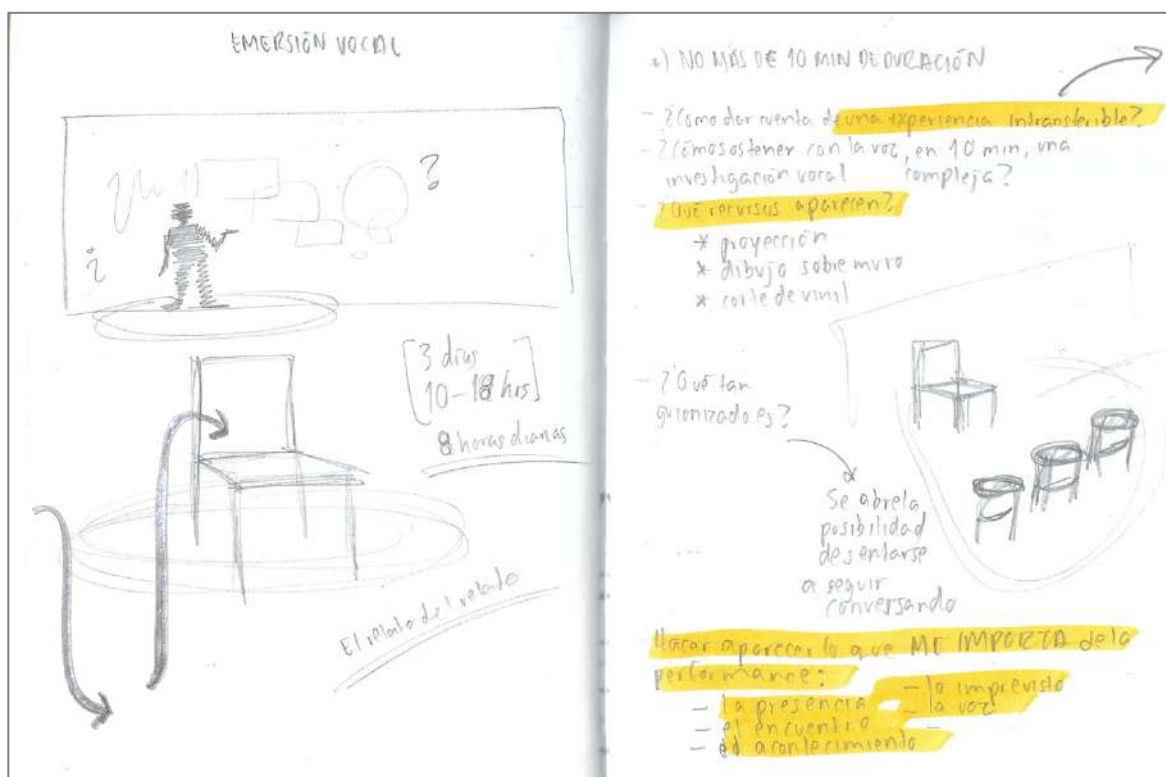 EMERSIÓN VOCAL
¿ ?
[3 días
10-18 hrs]
8 horas diarias
El relato del relato
*) NO MÁS DE 10 MIN DE DURACIÓN
- ¿Cómo dar cuenta de una experiencia intransferible?
- ¿Cómo sostener con la voz, en 10 min, una
investigación vocal compleja?
- ¿Qué recursos aparecen?
* proyección
* dibujo sobre muro
* corte de vinil
- ¿Qué tan
guionizado es?
Se abre la
posibilidad
de sentarse
a seguir
conversando
...
Hacer aparecer lo que ME IMPORTA de la
performance:
- la presencia - lo imprevisto
- el encuentro - la voz
- el acontecimiento -